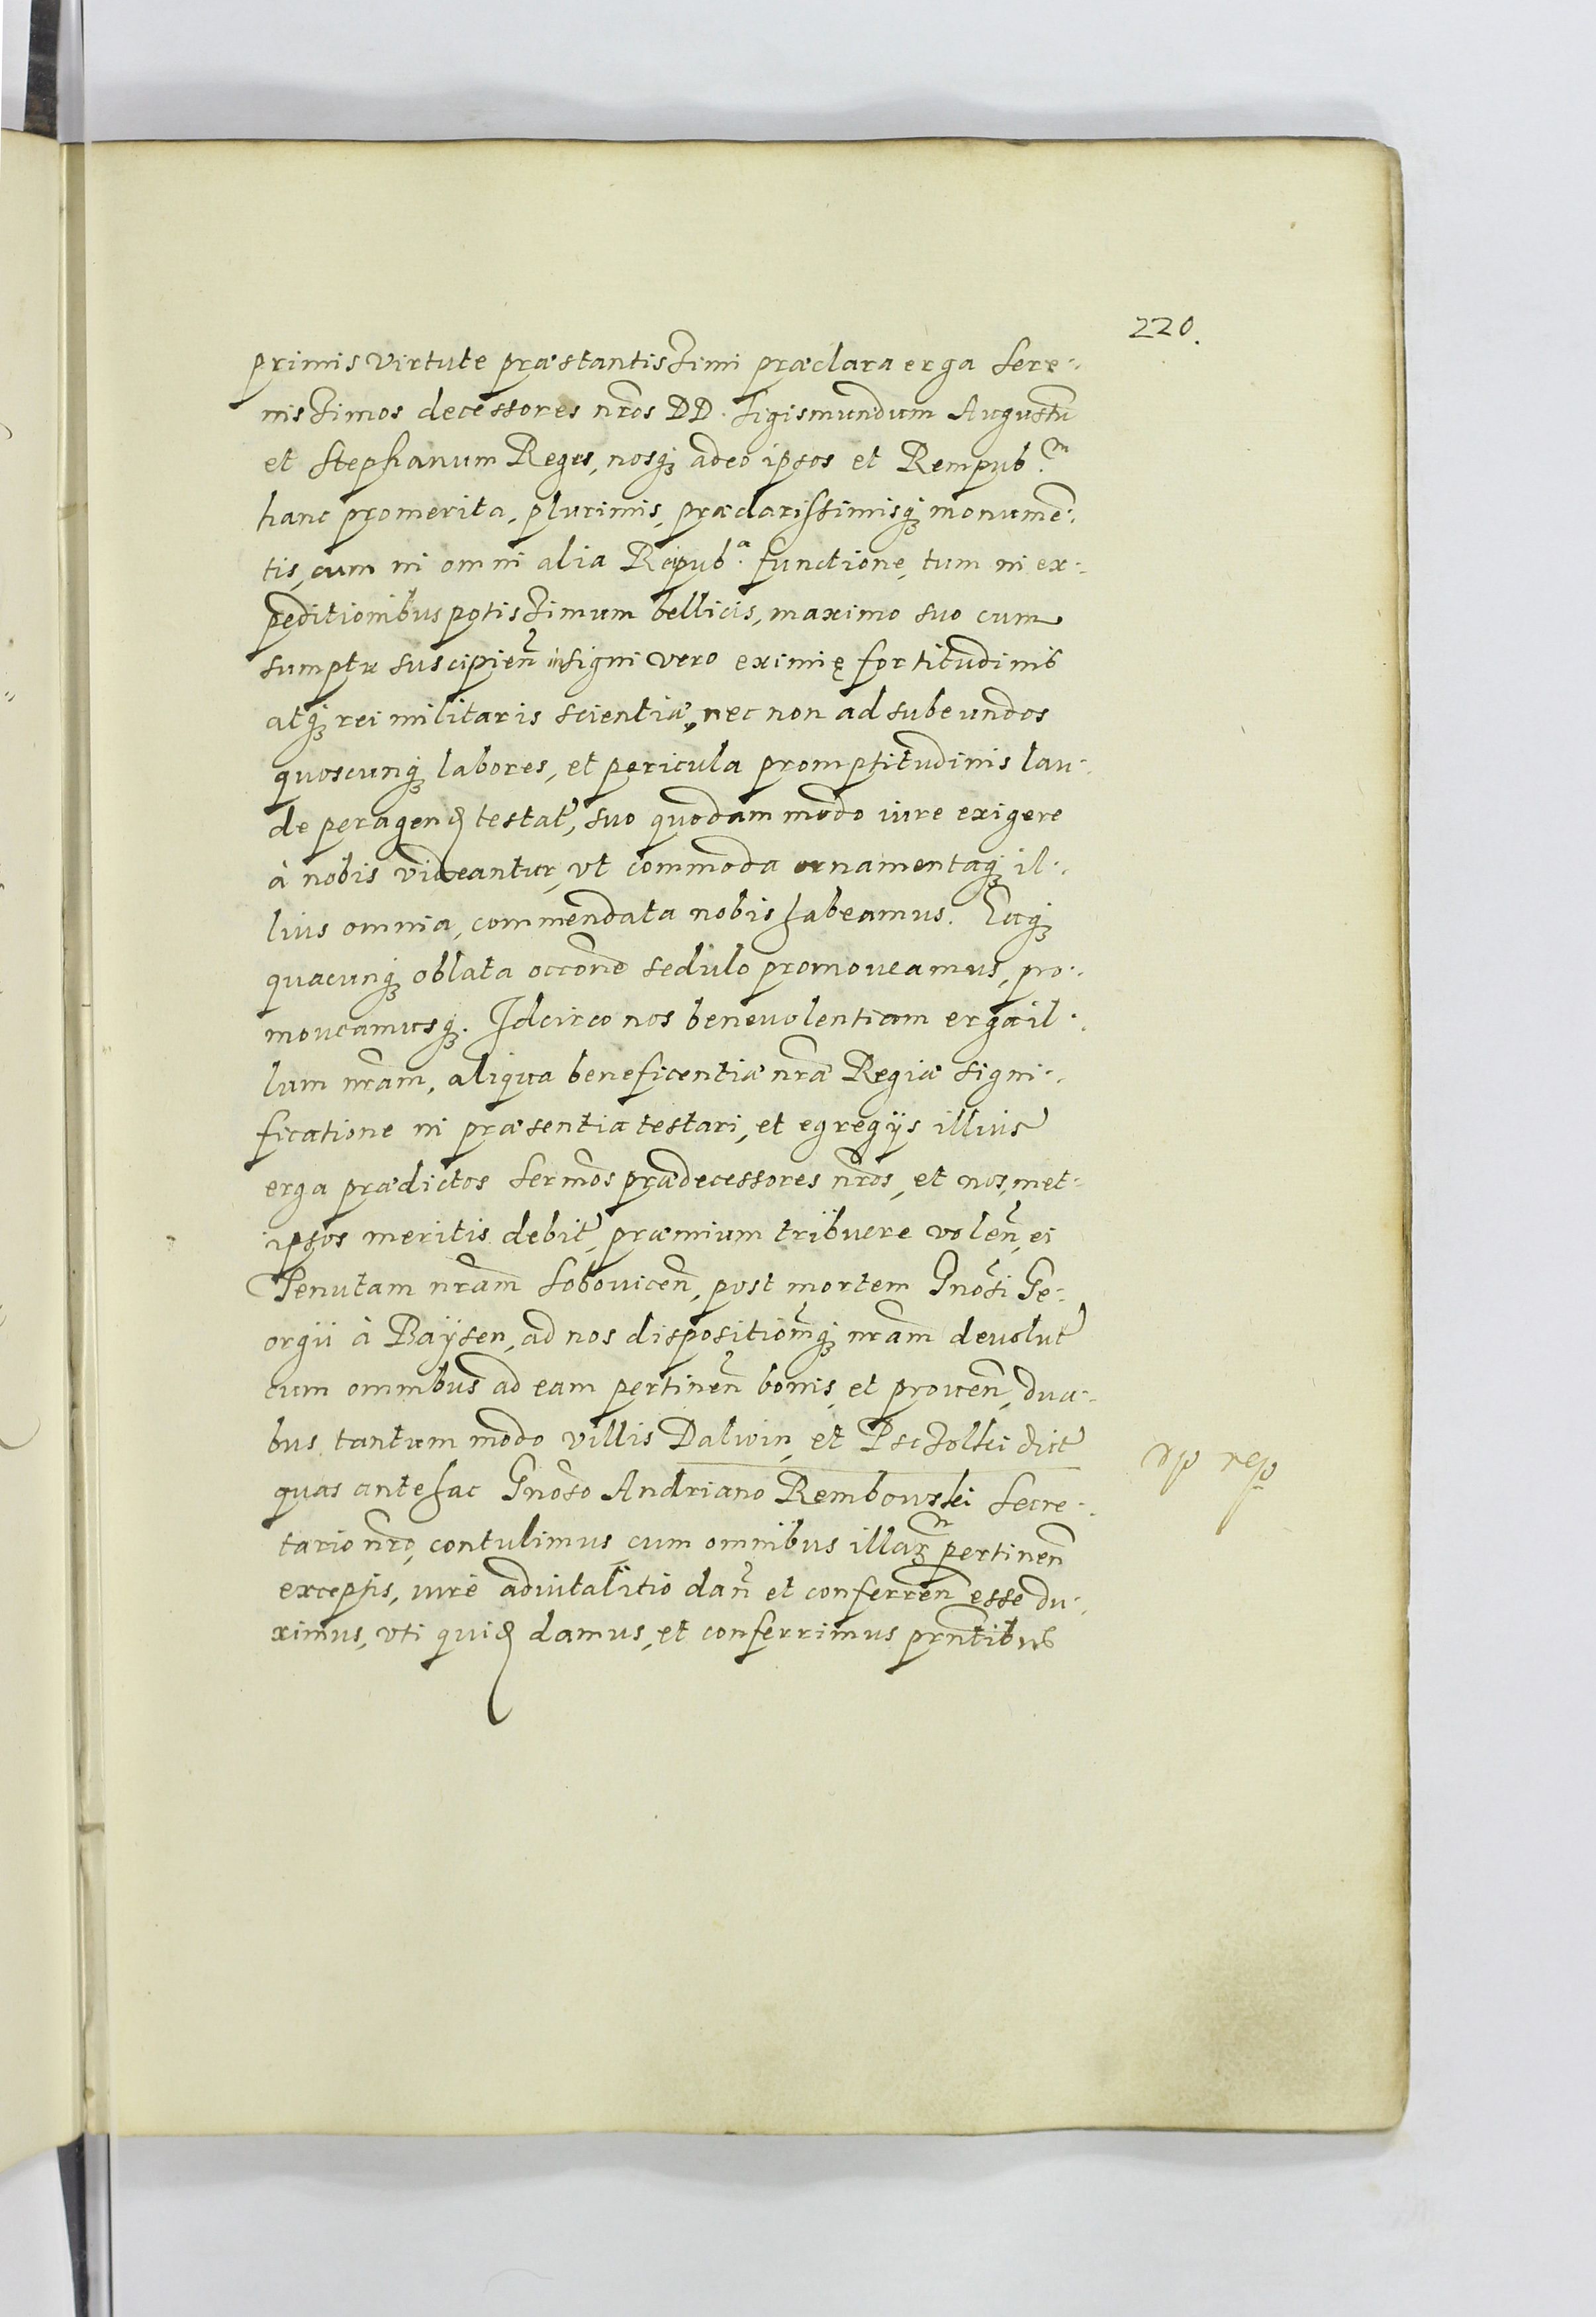 220.
primis virtute præstantissimi præclara erga Sere-
nissimos decessores nr̃os DD. Sigismundum Augustũ
et Stephanum Reges, nosq́ꝫ adeo ipsos et Rempub.m
hanc promerita, plurimis, præclarissimisq́ꝫ monumẽ-
tis, cum in omni alia Reipub.a functione, tum in ex-
peditionibus potissimum bellicis, maximo suo cum
sumptu suscipieñ insigni vero eximię fortitudinis
atq́ꝫ rei militaris scientiæ, nec non ad subeundos
quoscunq́ꝫ labores, et pericula promptitudinis lau-
de peragenđ testat̃, suo quodam modo iure exigere
à nobis videantur, vt commoda ornamentaq́ꝫ il-
lius omnia, commendata nobis habeamus. Eaq́ꝫ
quacunq́ꝫ oblata occõne sedulo promoueamus, pro-
moueamusq́ꝫ. Idcirco nos beneuolentiam erga il-
lum nr̃am, aliqua beneficentiæ nr̃æ Regiæ signi-
ficatione in præsentia testari, et egregijs illius
erga prædictos Serm̃os prædecessores nr̃os, et nosmet-
ipsos meritis debit̃, præmium tribuere voleñ, ei
Tenutam nr̃am Soboviceñ, post mortem Gnõsi Ge-
orgii à Baÿsen, ad nos dispositionẽq́ꝫ nr̃am deuolut̃
cum omnibus ad eam pertineñ bonis, et proueñ, dua-
bus tantum modo villis Dalwin, et Psczolki dict̃
quas antehac Gnõso Andriano Rembowski Secre-
tario nr̃o, contulimus cum omnibus illaꝝ pertineñ
exceptis, iure aduitalitio dañ et conferreñ esse du-
ximus, vti quiđ damus, et conferrimus prñtibus